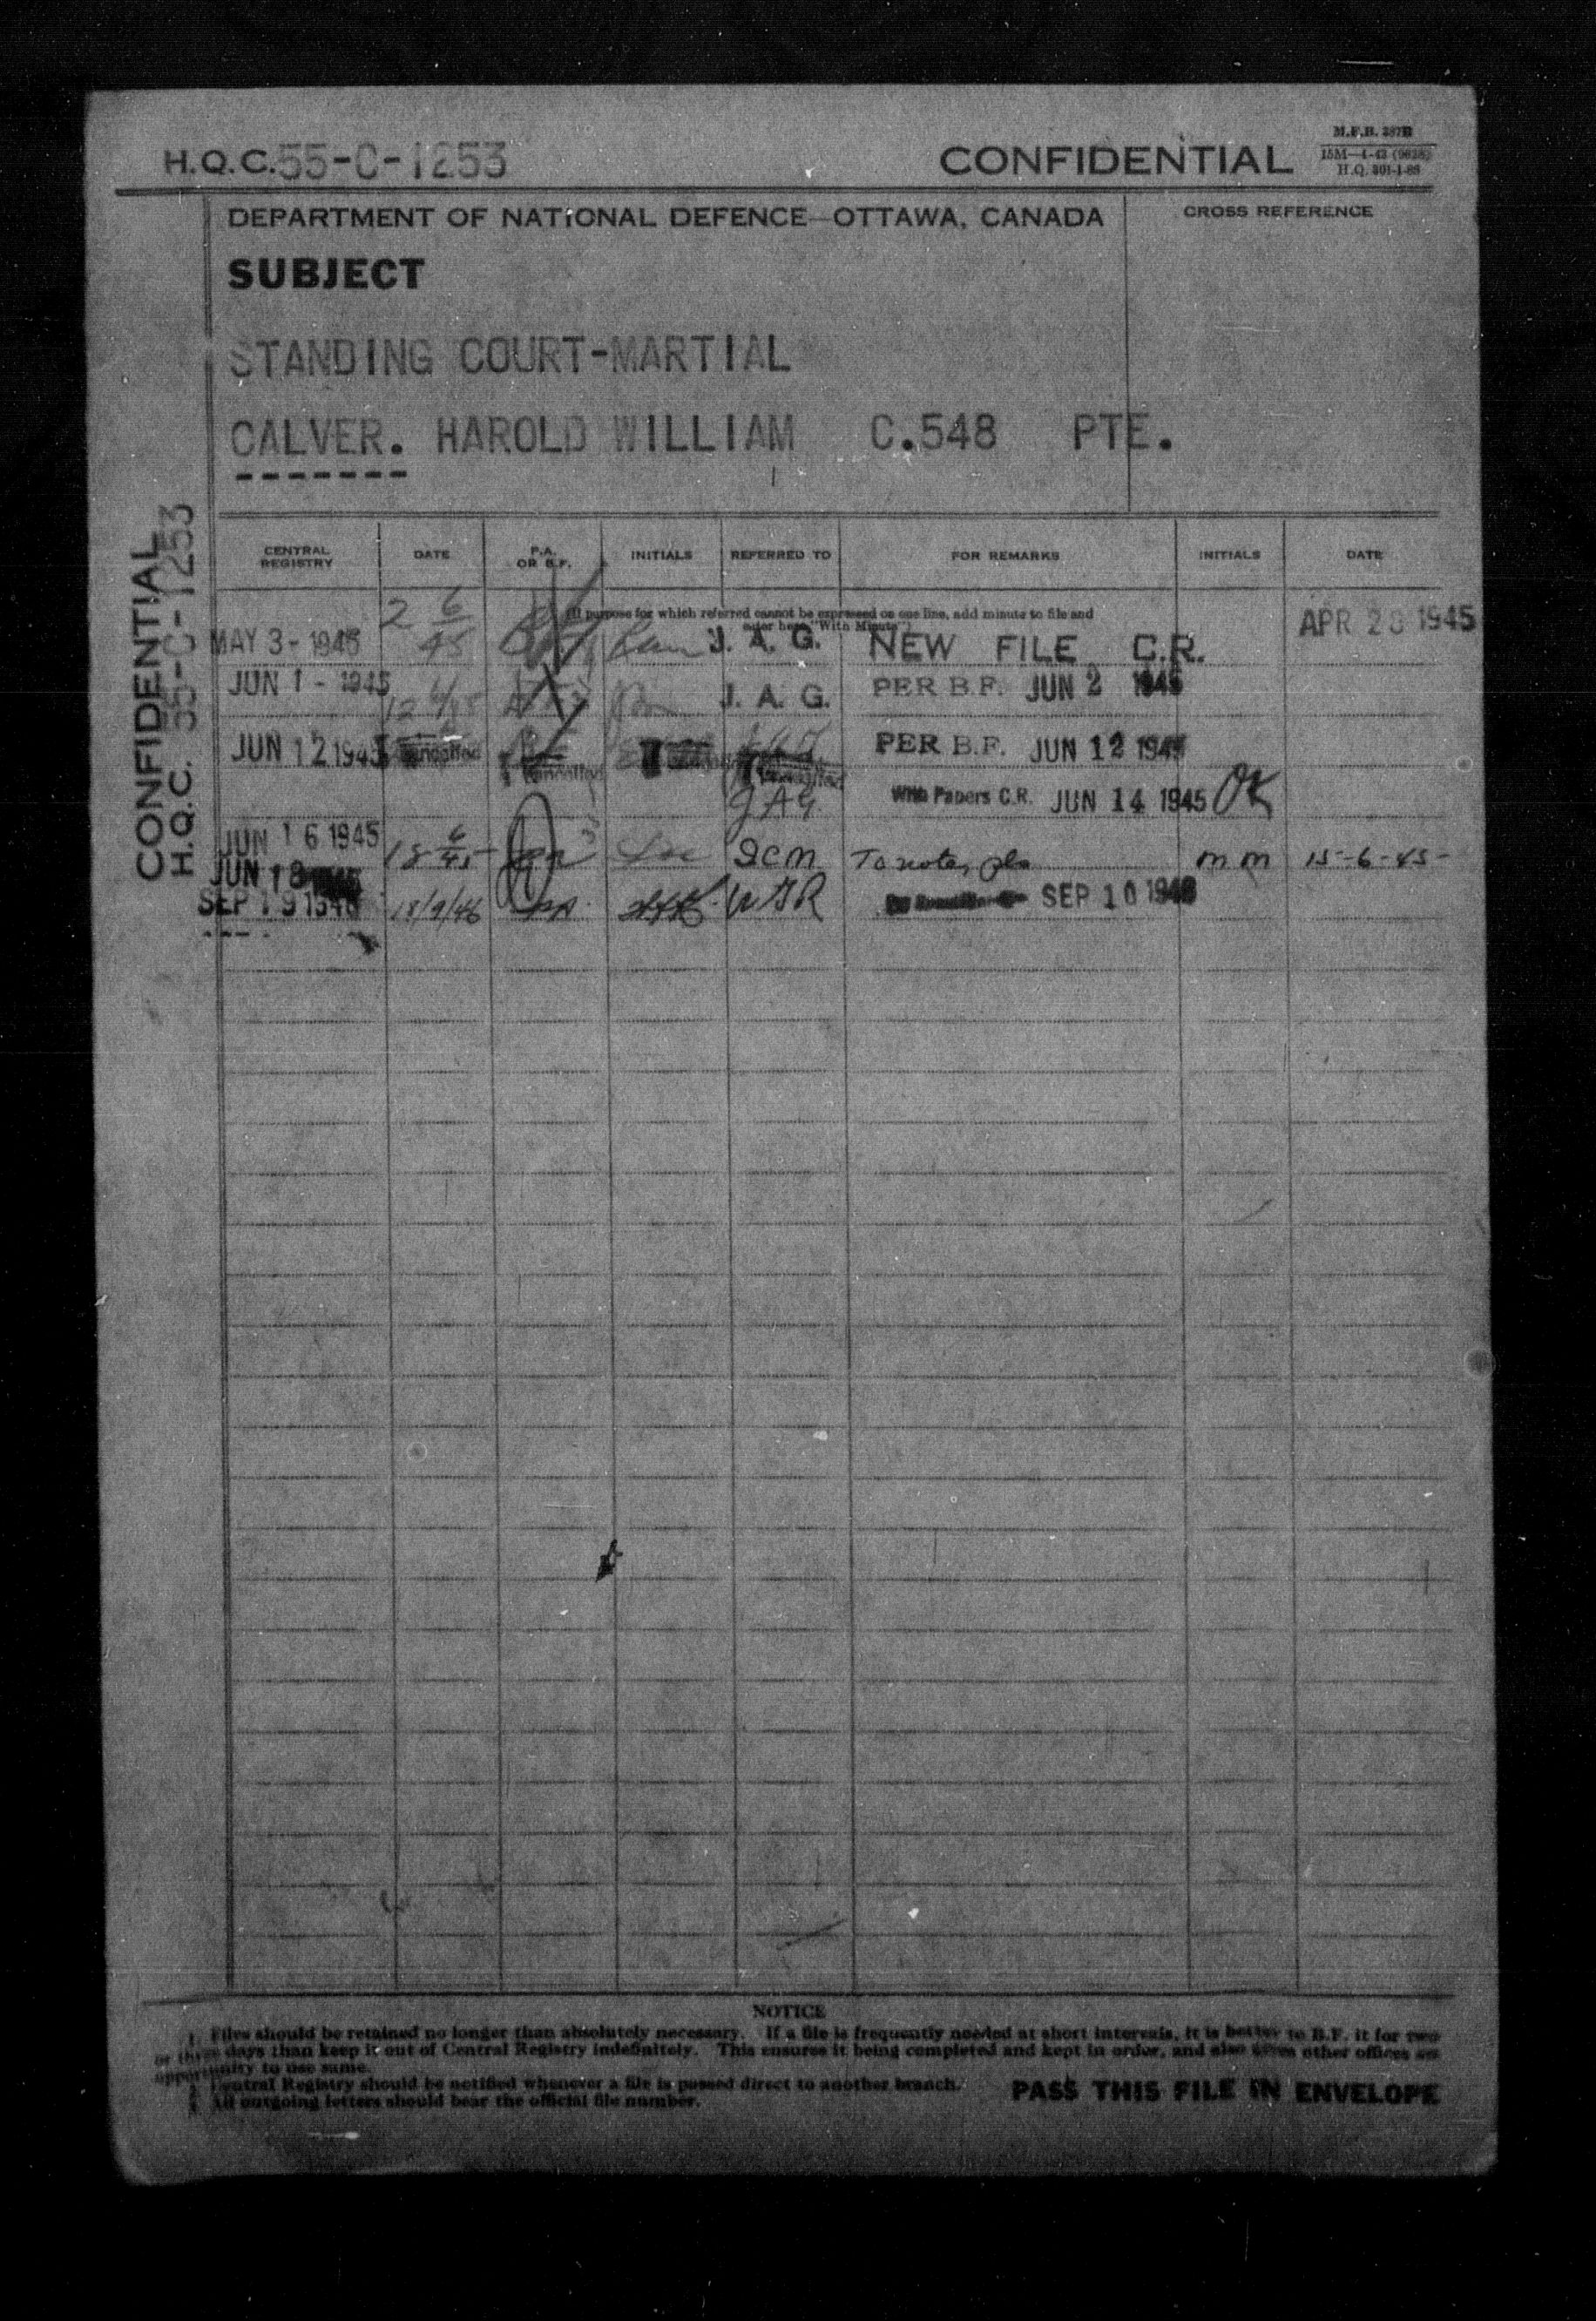 H.Q.C. 55-C-1253
CONFIDENTIAL
M.F.B. 387B
H.Q. 301-1-86
DEPARTMENT OF NATIONAL DEFENCE—OTTAWA, CANADA
CROSS REFERENCE
SUBJECT
STANDING COURT-MARTIAL
CALVER. HAROLD WILLIAM C.548 PTE.
CONFIDENTIAL
H.Q.C. 55-C-1253
CENTRAL REGISTRY DATE P.A. OR B.F. INITIALS REFERRED TO FOR REMARKS INITIALS DATE
(If purpose for which referred cannot be expressed on one line, add minute to file and
enter here "With Minute")
MAY 3 - 1945 2 6/45 J. A. G. NEW FILE C.R. APR 28 1945
JUN 1 - 1945 12 6/45 J. A. G. PER B.F. JUN 2 1945
JUN 12 1945 Cancelled Cancelled Cancelled PER B.F. JUN 12 1945
J A G. With Papers C.R. JUN 14 1945 OK
JUN 16 1945 18 6/45 To note, pls m m 15-6-45
JUN 18 1945
SEP 19 1946 18/9/46 P.A. W S R SEP 10 1946
NOTICE
1. Files should be retained no longer than absolutely necessary. If a file is frequently needed at short intervals, it is better to B.F. it for two
or three days than keep it out of Central Registry indefinitely. This ensures it being completed and kept in order, and also gives other offices an
opportunity to use same.
2. Central Registry should be notified whenever a file is passed direct to another branch.
3. All outgoing letters should bear the official file number.
PASS THIS FILE IN ENVELOPE